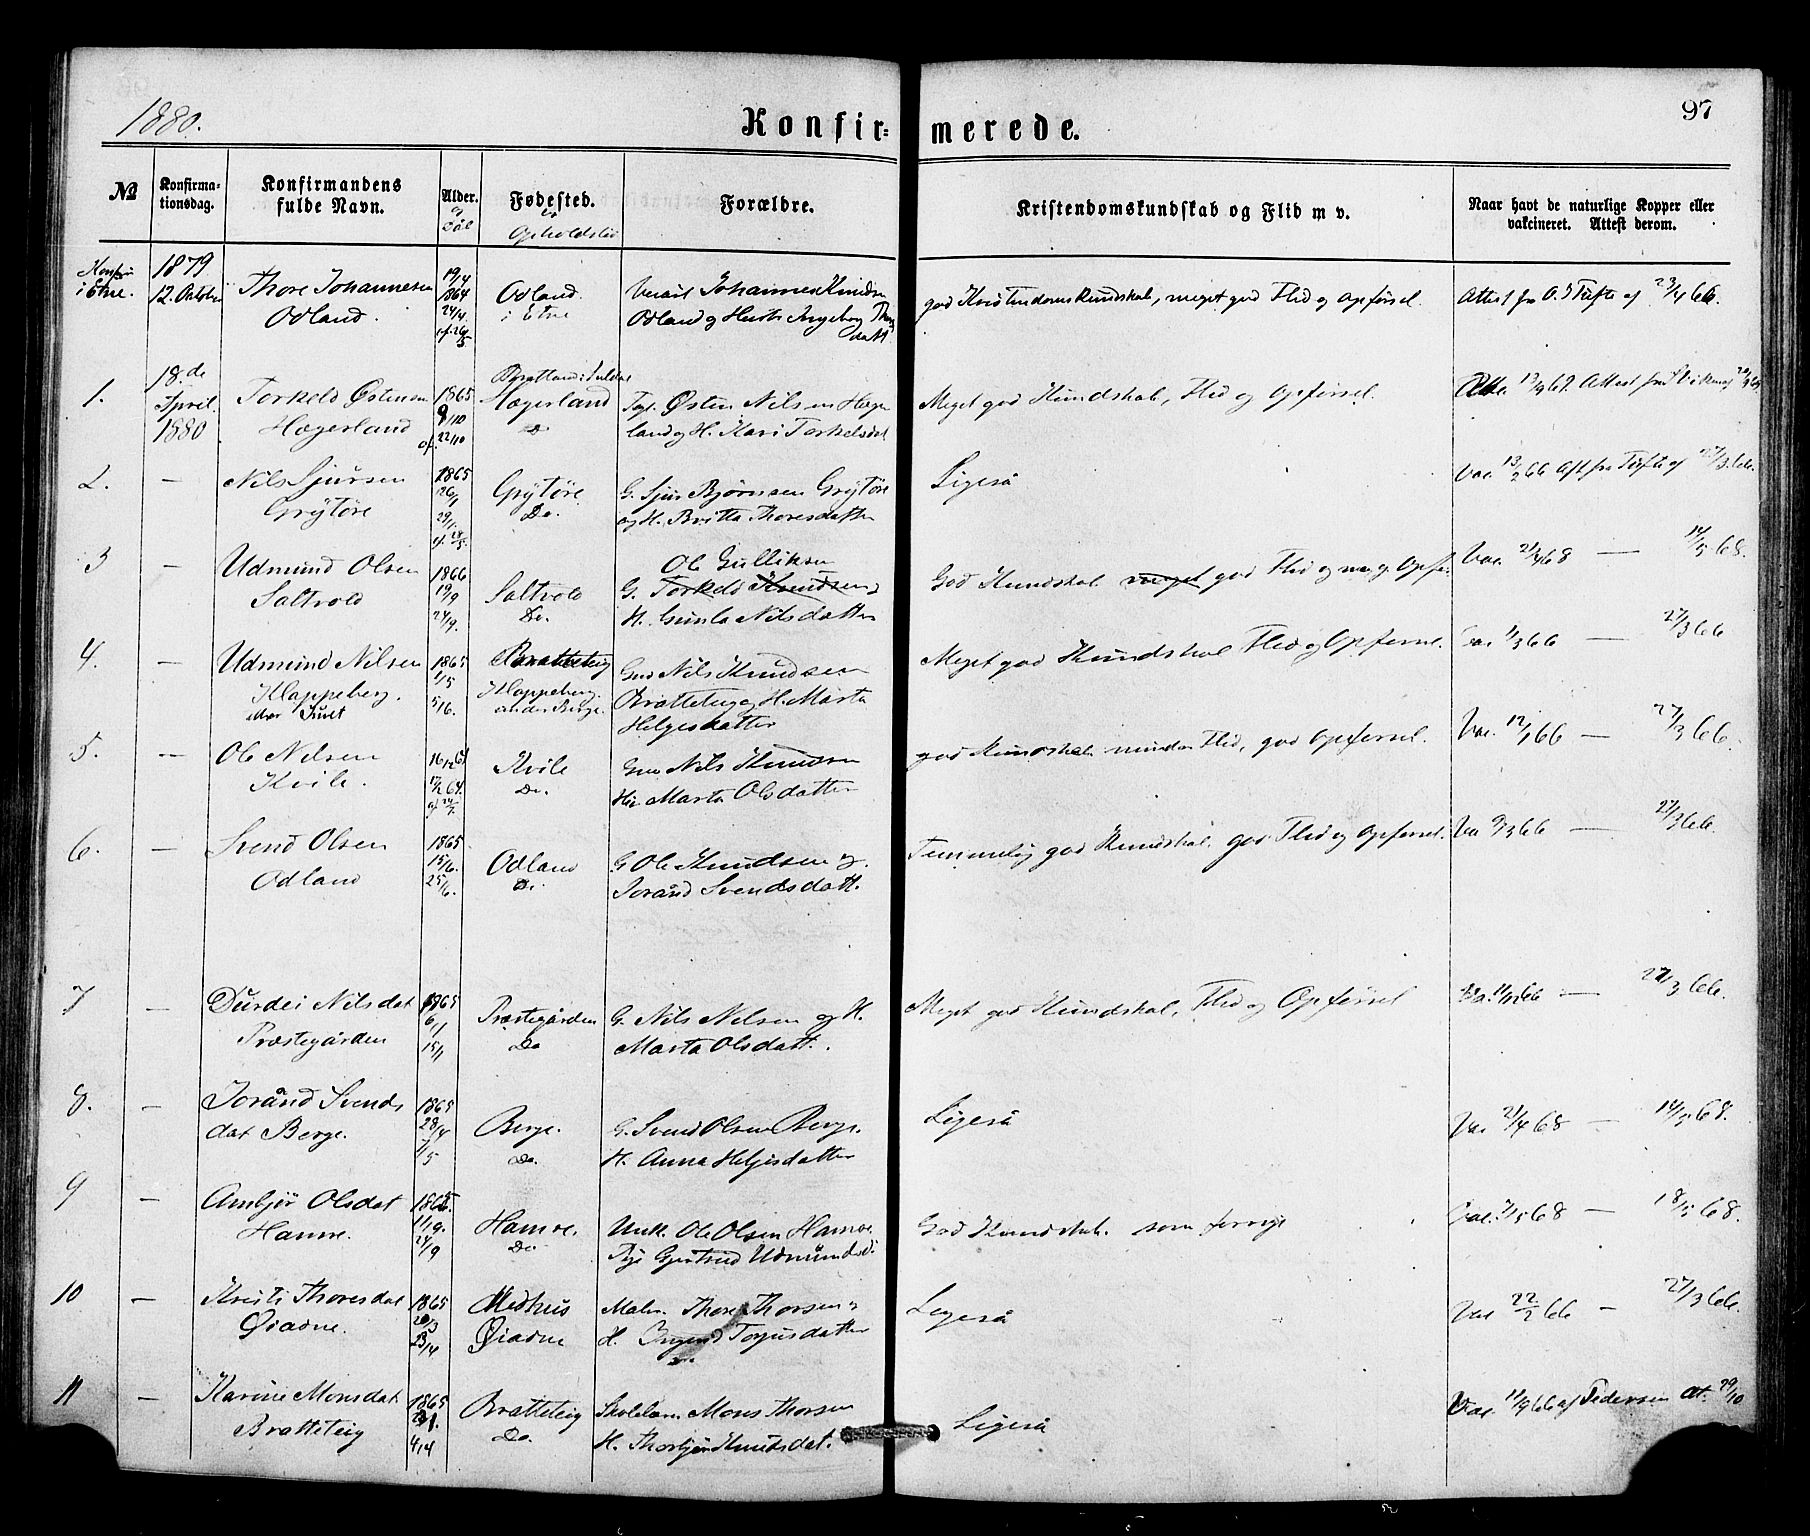 1880.
Konfir= merede.
97
No
Konfirma-
tionsdag.
Konfirmandens
fulde Navn.
Alder.
og
Dåb
Fødested.
og
Opholdsted
Forældre.
Kristendomskundskab og Flid m v.
Naar havt de naturlige Kopper eller
vakcineret. Attest derom.
Konfir
i Etne.
1879
12. October
Thore Johannesen
Odland.
19/4
1864
24/4
cf. 26/5
Odland
i Etne
Johannes Knudsen
Odland og Hustr Ingeborg Thors
datt
god Kristendomskundskab, meget god Flid og Opførsel.
Attest fra O. Tufte af 23/4 66.
1.
18.de
April
1880
Torkeld Østensen
Hægerland
1865
9/10
cf. 22/10
Bratland i Suldal
Hægerland
Do
Østen Nilsen Hæger
land og H. Kari Torkelsdat
Meget god Kundskab, Flid og Opførsel.
2.
—
Nils Sjursen
Grytöre
1865
26/1
29/1.
cf. 28/5
Grytöre
Do.
G. Sjur Bjørnsen Grytöre
og H. Britta Thoresdatter
Ligeså
Vac. 13/2 66 Att fra Tufte af 27/3 66.
3
—
Udmund Olsen
Saltvold
1866
19/9
24/9.
Saltvold
Do.
Ole Gulliksen
G. Torkeld Knudsen,
H. Gunla Nilsdatter
God Kundskab meget god Flid og meg. Opfø.
Vac 21/4 68 — 14/5 68.
4.
—
Udmund Nilsen
Klappeberg.
1865
1/5
5/6.
Bratteteig
Klappeberg.
under Berge.
Nils Knudsen
Bratteteig og H. Marta
Helgesdatter
Meget god Kundskab Flid og Opførsel.
Vac 1/3 66 — 27/3 66
5.
—
Ole Nilsen
Kvile.
16/12 64
17/12 64.
Kvile
Do.
Nils Knudsen
Marta Olsdatter
god Kundskab mindre Flid, god Opførsel.
Vac. 12/1 66 — 27/3 66.
6.
—
Svend Olsen
Odland
1865
15/6.
25/6.
Odland
Do.
G Ole Knudsen og
Joránd Svendsdatt.
Temmelig god Kundskab. god Flid og Opførsel.
Va 9/3 66 — 27/3 66.
7
—
Durdei Nilsdat
Præstegården
1865
6/1
15/1
Præstegården
Do
G. Nils Nilsen og H.
Marta Olsdatt.
Meget god Kundskab, Flid og Opførsel
— 27/3 66.
8.
—
Joránd Svends
dat Berge.
1865
28/4
7/5
Berge.
Do.
G. Svend Olsen Berge.
H. Anna Helgesdatter
Ligeså
Vac 21/4 68 — 14/5 68.
9
—
Ambjør Olsdat
Hamre.
1865.
11/9.
24/9
Hamre.
Do
Ole Olsen Hamre
Gjertrud Udmundsd.
God Kundskab. som forrige
Vac. 7/5 68 — 18/5 68.
10
—
Kristi Thoresdat
Øiadne.
1865
20/3
23/4
Medhus
Øiadne
Thore Thorsen
H. Torjusdatter
Ligeså
Vac 22/2 66 — 27/3 66.
11
—
Karine Monsdat
Bratteteig
1865
4/4
Bratteteig
Do.
Skolelær. Mons Thorsen
H. Thorbjør Knudsdat.
Ligeså
Vac. 11/9 66 af Pedersen at. 29/10